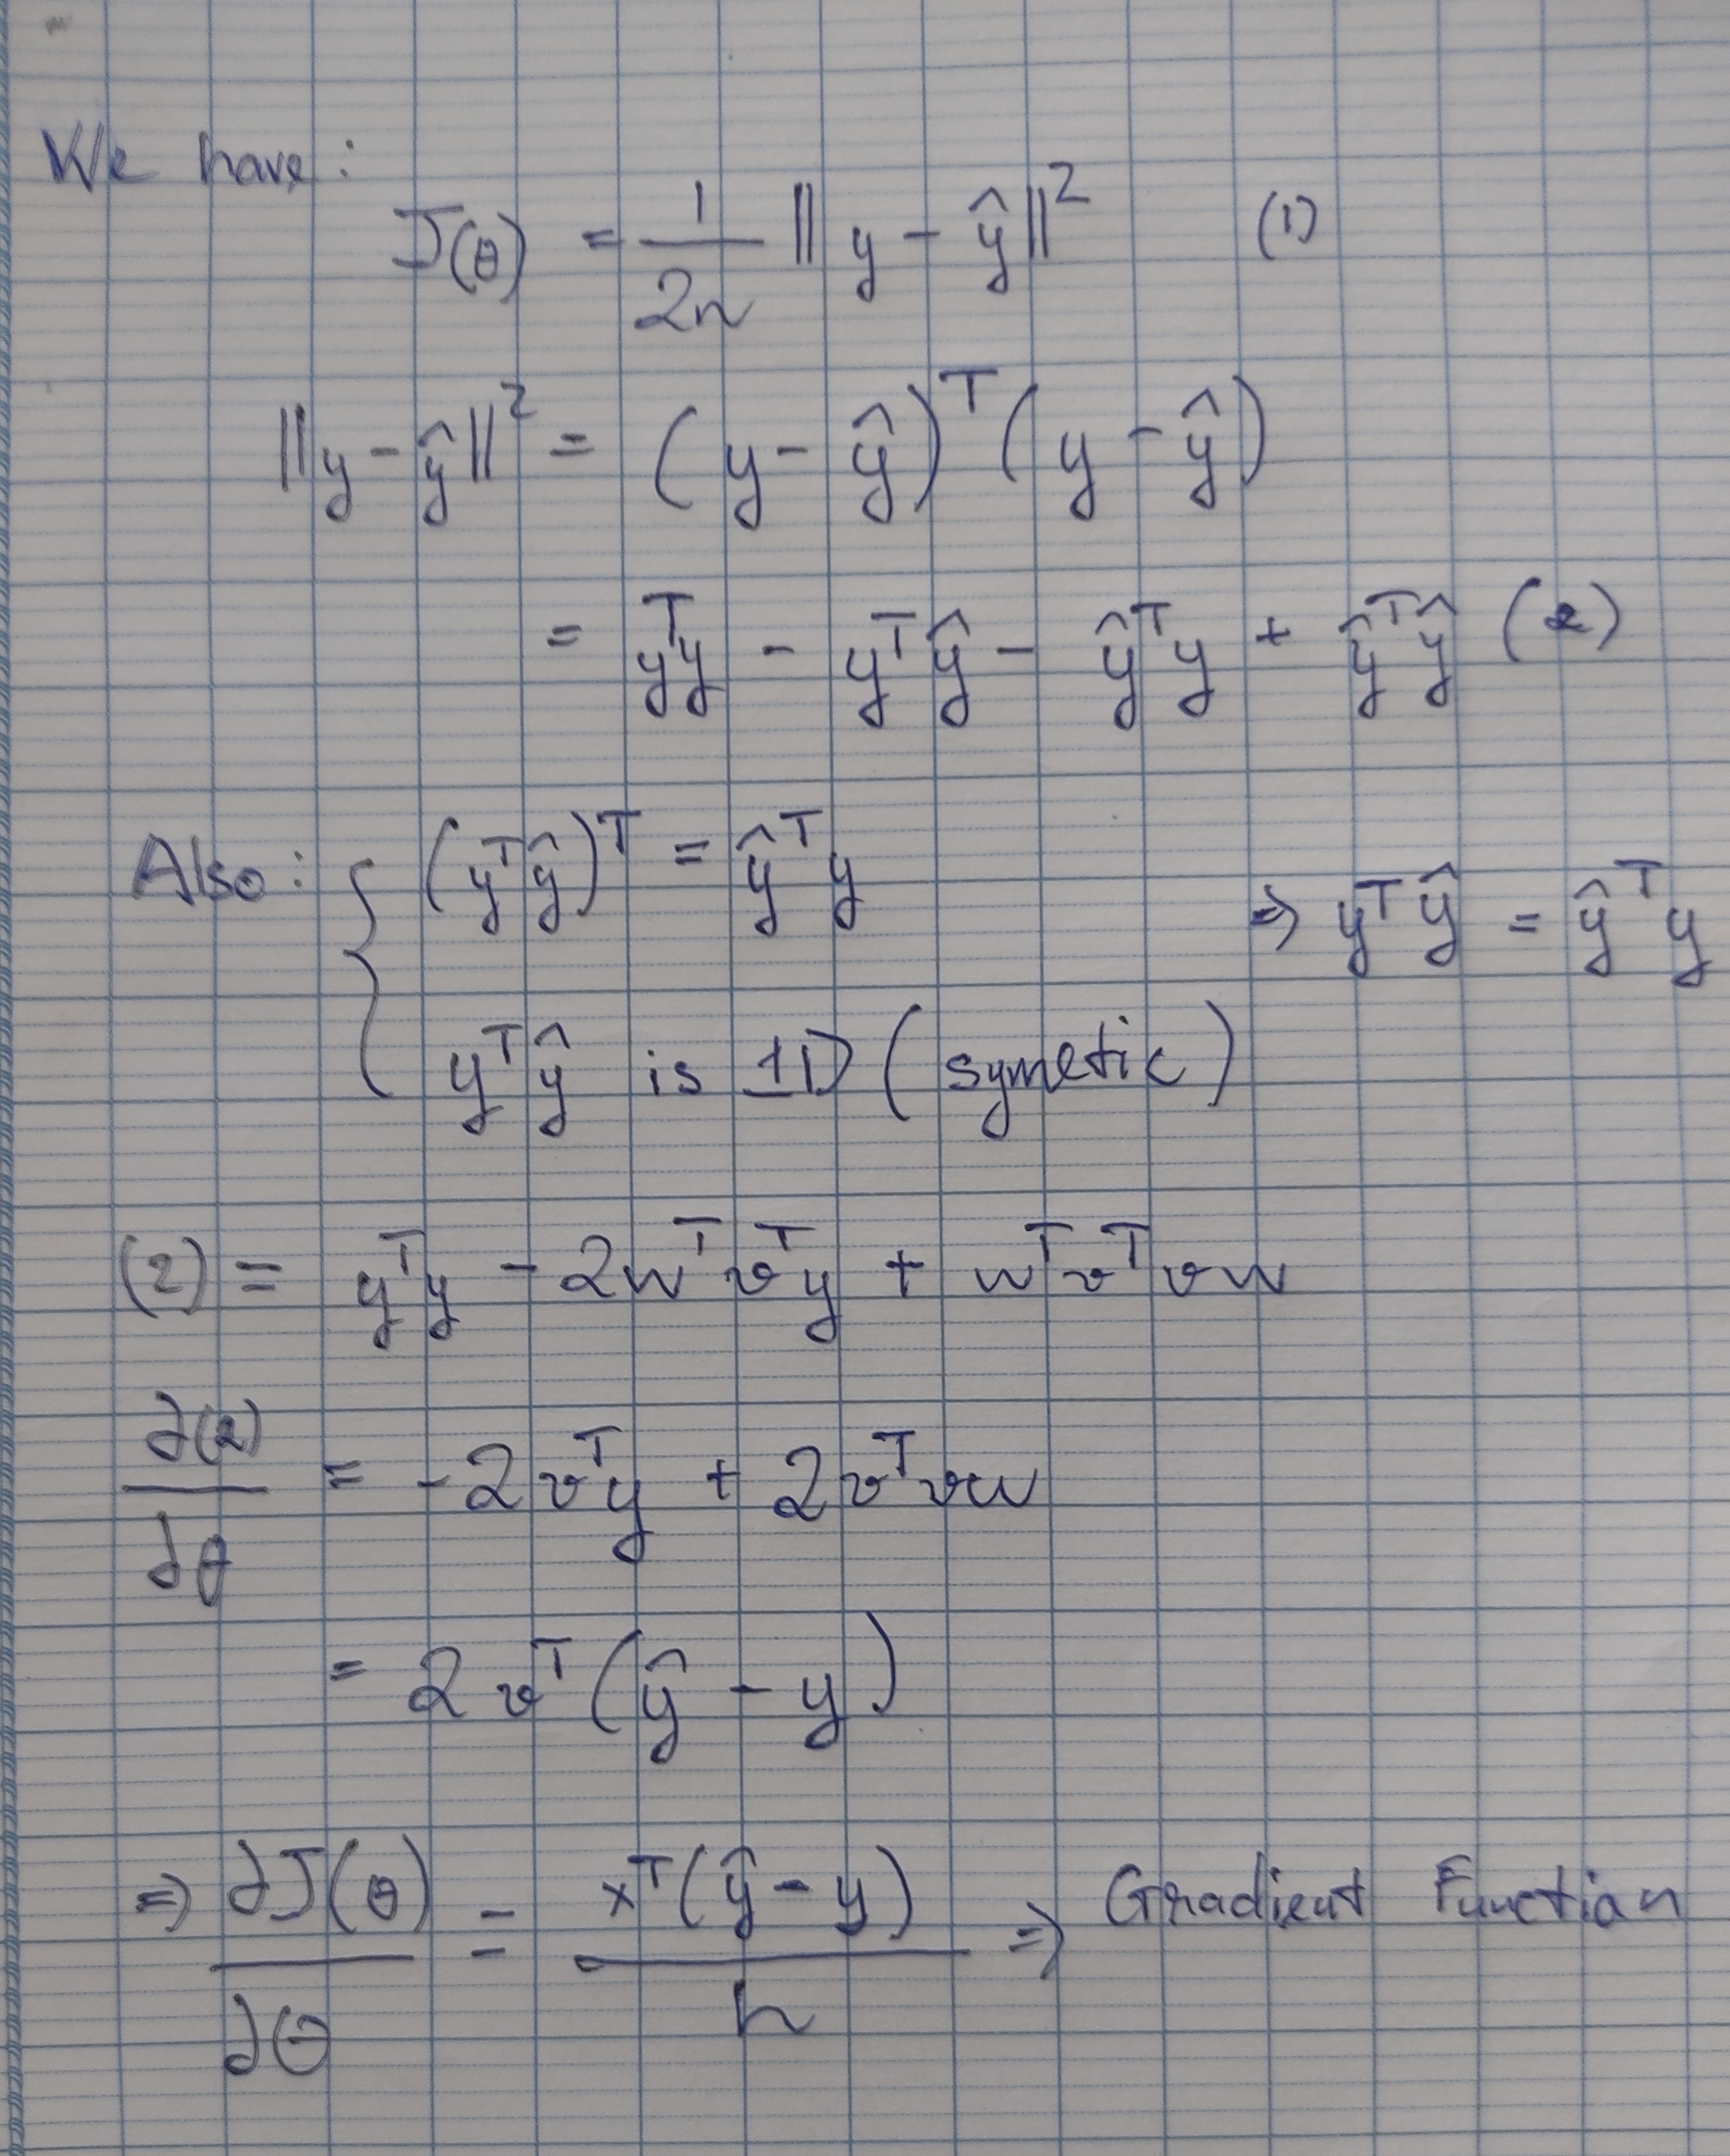 We have:
J(θ) = 1/2n ||y - ŷ||² (1)
||y - ŷ||² = (y - ŷ)ᵀ(y - ŷ)
= yᵀy - yᵀŷ - ŷᵀy + ŷᵀŷ (2)
Also: { (yᵀŷ)ᵀ = ŷᵀy
⇒ yᵀŷ = ŷᵀy
yᵀŷ is 1D (symetic)
(2) = yᵀy - 2wᵀvᵀy + wᵀvᵀvw
∂(2)/∂θ = -2vᵀy + 2vᵀvw
= 2vᵀ(ŷ - y)
⇒ ∂J(θ)/∂θ = xᵀ(ŷ - y)/n ⇒ Gradient Function